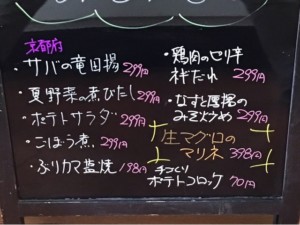 京都府
・サバの竜田揚 299円
・夏野菜の煮びたし 299円
・ポテトサラダ 299円
・ごぼう煮 299円
・ぶりカマ塩焼 198円
・鶏肉のセリ辛
たれ 299円
・なすと厚揚の
みそ炒め 299円
生マグロの
マリネ 398円
手づくり
ポテトコロッケ 70円